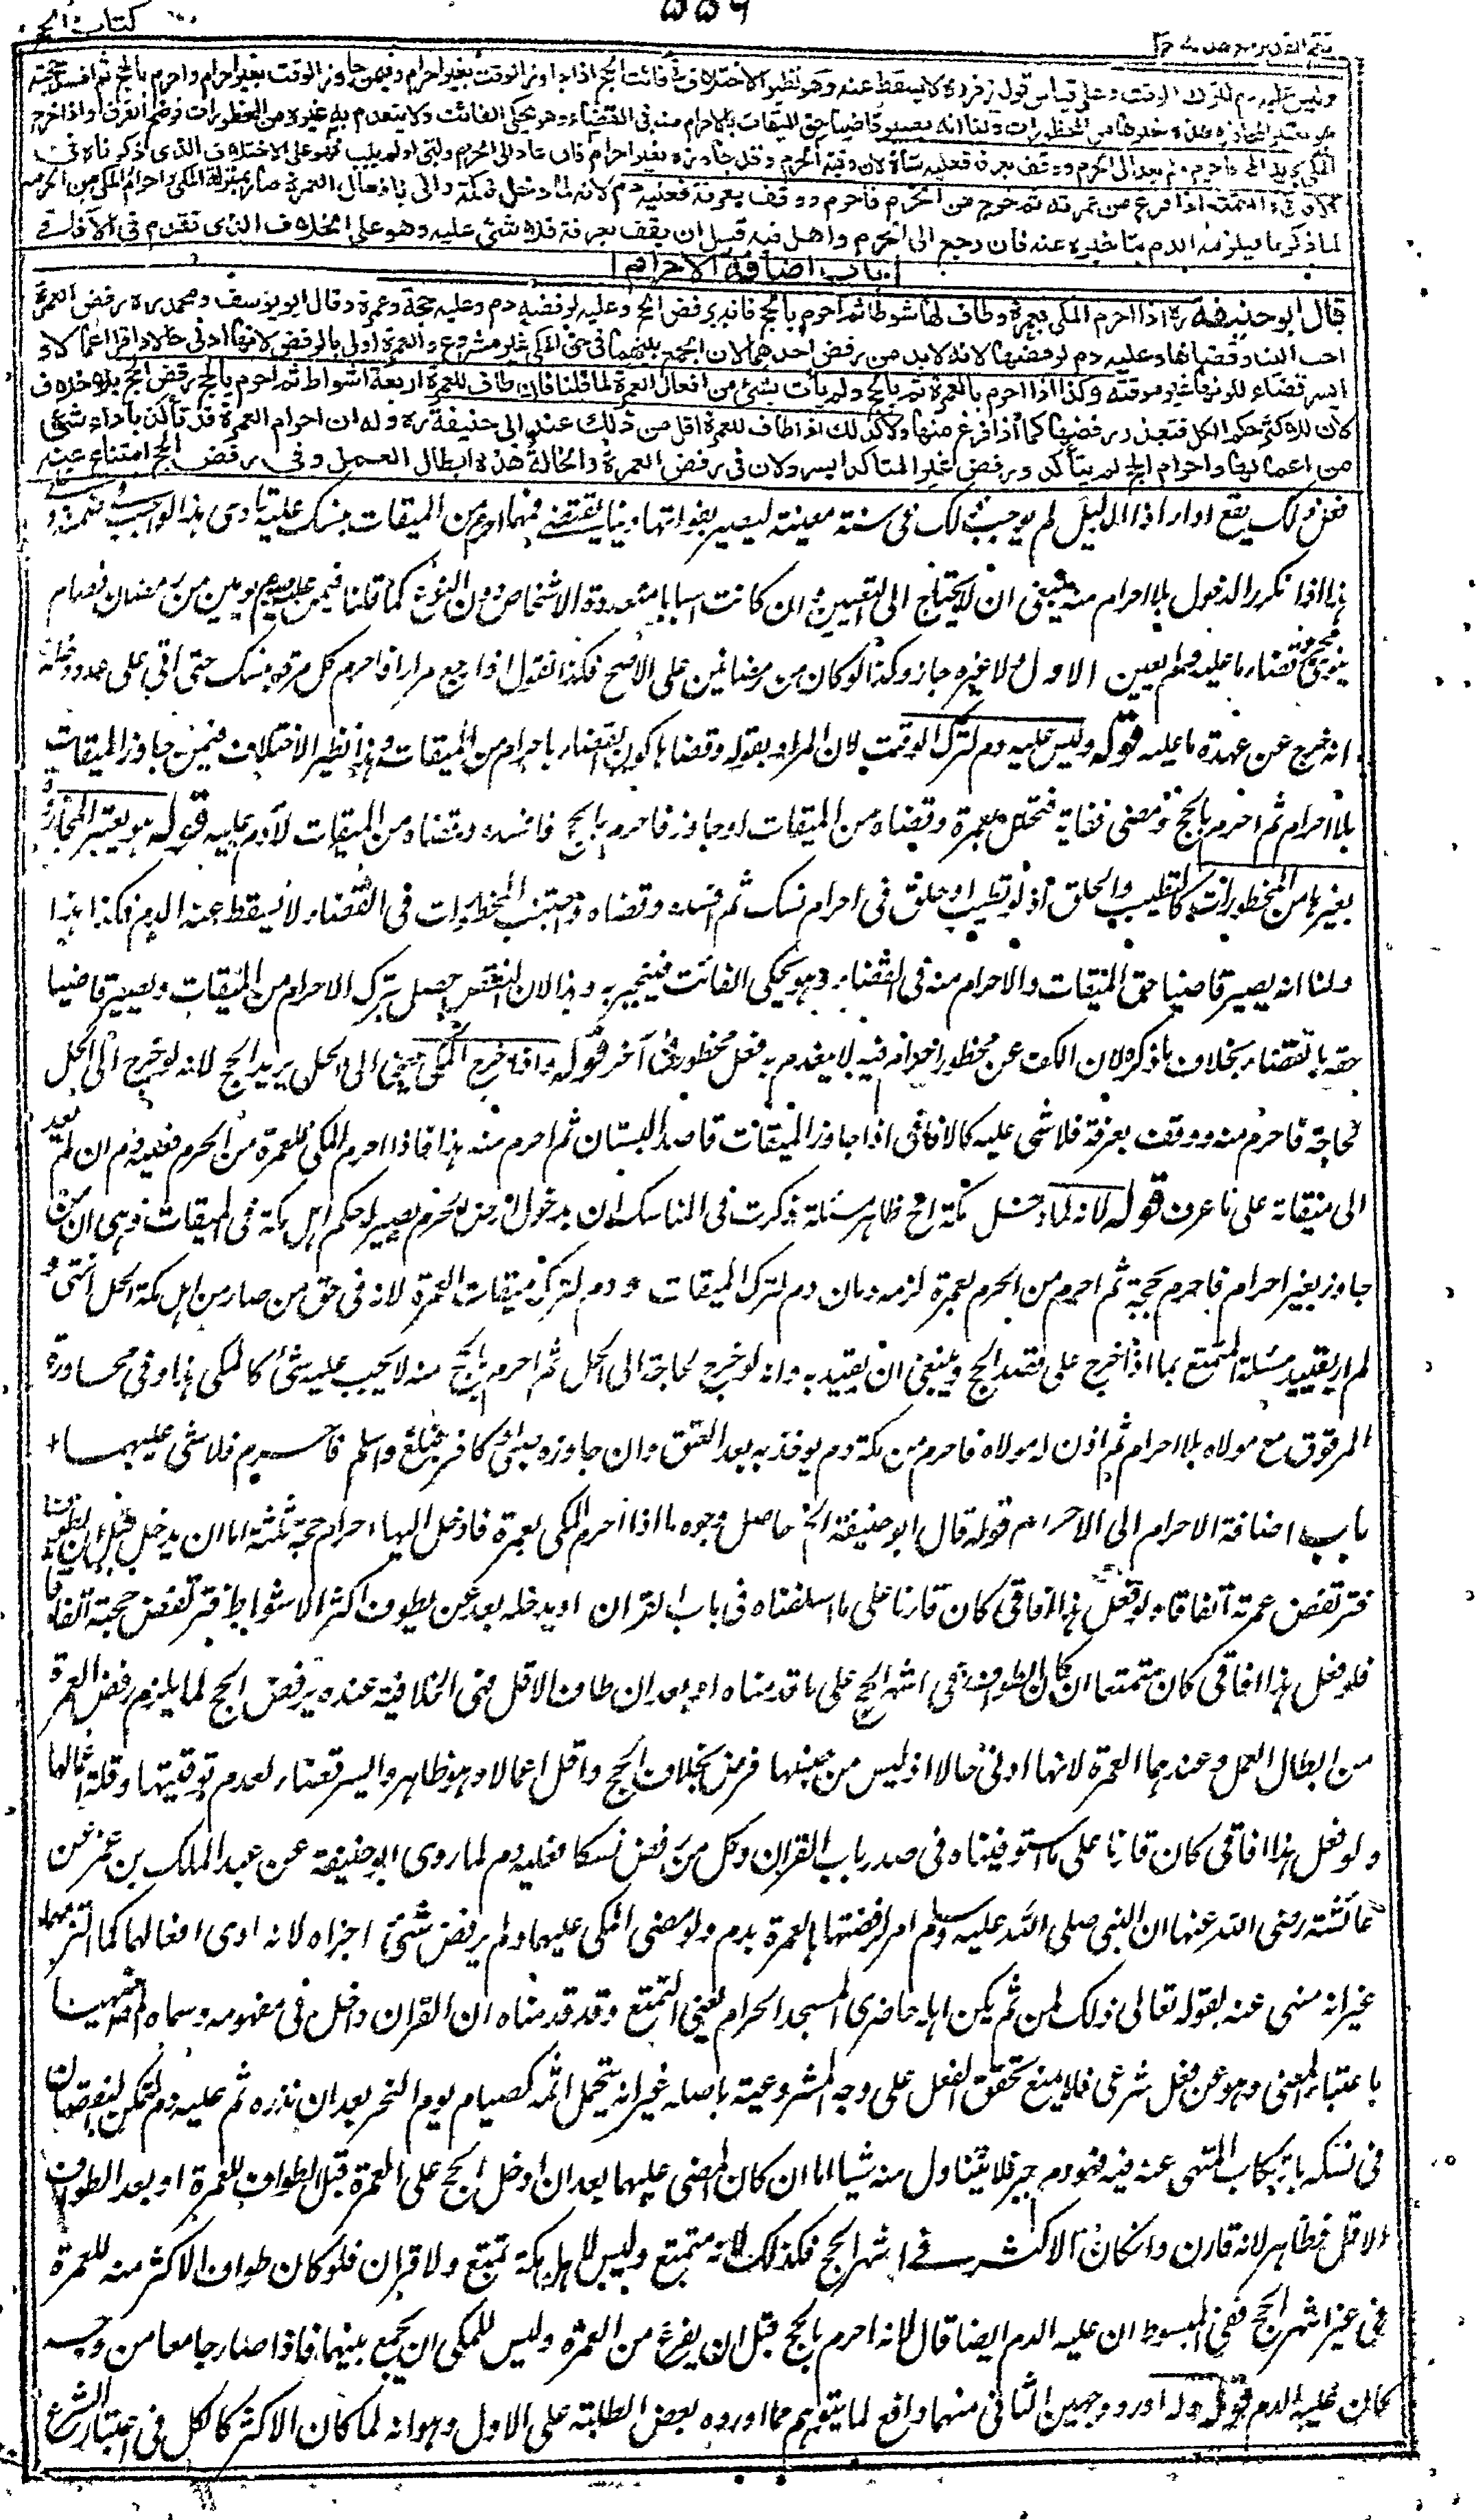 كتاب الحج
وليس عليه دم لترك الوقت وعلى قياس قول زفر ره لا يسقط عنه وهو نظير الاختلاف في فائت الحج اذا جاوز الوقت بغير احرام وفيمن جاوز الوقت بغير احرام واحرم بالحج ثم افسد حجته
هو يعتبر المجاوزة هذه بغيرها من المحظورات ولنا انه يصير قاضيا حق الميقات بالاحرام منه في القضاء وهو يحكي الفائت ولا ينعدم به غيره من المحظورات فوضح الفرق واذا خرج
المكي يريد الحج فاحرم ولم يعد الى الحرم ووقف بعرفة فعليه شاة لان وقته الحرم وقد جاوزه بغير احرام فان عاد الى الحرم ولبى او لم يلب فهو على الاختلاف الذي ذكرناه في
الآفاقي والمتمتع اذا فرغ من عمرته ثم خرج من الحرم فاحرم ووقف بعرفة فعليه دم لانه لما دخل مكة واتى بافعال العمرة صار بمنزلة المكي واحرام المكي من الحرم
لما ذكرنا فيلزمه الدم بتاخيره عنه فان رجع الى الحرم واهل فيه قبل ان يقف بعرفة فلا شئ عليه وهو على الخلاف الذي تقدم في الآفاقي
باب اضافة الاحرام
قال ابو حنيفة ره اذا احرم المكي بعمرة وطاف لها شوطا ثم احرم بالحج فانه يرفض الحج وعليه لرفضه دم وعليه حجة وعمرة وقال ابو يوسف ومحمد ره رفض العمرة
احب الينا وقضاها وعليه دم لرفضها لانه لا بد من رفض احدهما لان الجمع بينهما في حق المكي غير مشروع والعمرة اولى بالرفض لانها ادنى حالا واقل اعمالا و
ايسر قضاء لكونها غير موقتة وكذا اذا احرم بالعمرة ثم بالحج ولم يأت بشئ من افعال العمرة لما قلنا فان طاف للعمرة اربعة اشواط ثم احرم بالحج رفض الحج بلا خلاف
لان للاكثر حكم الكل فتعذر رفضها كما اذا فرغ منها ولا كذلك اذا طاف للعمرة اقل من ذلك عند ابي حنيفة ره وله ان احرام العمرة قد تأكد باداء شئ
من اعمالها واحرام الحج لم يتأكد ورفض غير المتأكد ايسر ولان في رفض العمرة والحالة هذه ابطال العمل وفي رفض الحج امتناع عنه
فعن ذلك يقع اداء اذا الدليل لم يوجب ذلك في سنة معينة ليصير بفواتها دينا يقضى فمهما احرم من الميقات بنسك عليه تادى هذا الواجب في ضمنه و
هذا اذا تكرر الدخول بلا احرام منه ينبغي ان لا يحتاج الى التعيين وان كانت اسبابا متعددة الاشخاص دون النوع كما قلنا فيمن عليه يومين من رمضان فصام
ينوي مجرد قضاء ما عليه ولم يعين الاول ولا غيره جاز وكذا لو كان من رمضانين على الاصح فكذا نقول اذا رجع مرارا فاحرم كل مرة بنسك حتى اتى على عدد دخلاته
انه خرج عن عهدة ما عليه قوله وليس عليه دم لترك الوقت لان المراد بقوله وقضاها كون القضاء باحرام من الميقات وهذا نظير الاختلاف فيمن جاوز الميقات
بلا احرام ثم احرم بالحج ومضى ففاته فتحلل بعمرة وقضاه من الميقات او جاوز فاحرم بالحج فافسده وقضاه من الميقات لا دم عليه قوله هو يعتبر المجاوزة
بغيرها من المحظورات كالتطيب والحلق اذ لو تطيب او حلق في احرام نسك ثم افسده وقضاه واجتنب المحظورات في القضاء لا يسقط عنه الدم فكذا هذا
ولنا انه يصير قاضيا حق الميقات والاحرام منه في القضاء وهو يحكي الفائت فينجبر به وهذا لان النقص حصل بترك الاحرام من الميقات ويصير قاضيا
حقه بالقضاء بخلاف ما ذكر لان الكف عن محظور احرام فيه لا ينعدم به فعل محظور في آخر قوله واذا خرج المكي يعني الى الحل يريد الحج لانه لو خرج الى الحل
لحاجة فاحرم منه ووقف بعرفة فلا شئ عليه كالآفاقي اذا جاوز الميقات قاصد البستان ثم احرم منه هذا فاذا احرم المكي للعمرة من الحرم فعليه دم ان لم يعد
الى ميقاته على ما عرف قوله لانه لما دخل مكة الخ ظاهر مسئلة ذكرت في المناسك ان بدخول ارض الحرم يصير له حكم اهل مكة في الميقات وهي ان من
جاوز بغير احرام فاحرم بحجة ثم احرم من الحرم بعمرة لزمه دمان دم لترك الميقات ودم لترك ميقات العمرة لانه في حق من صار من اهل مكة الحل انتهى و
لم ار تقييد مسئلة المتمتع بما اذا خرج على قصد الحج وينبغي ان يقيد به وانه لو خرج لحاجة الى الحل ثم احرم بالحج منه لا يجب عليه شئ كالمكي هذا وفي مجاوزة
المرقوق مع مولاه بلا احرام ثم اذن له مولاه فاحرم من مكة دم يؤخذ به بعد العتق وان جاوزه صبي او كافر فبلغ واسلم فاحرم فلا شئ عليهما
باب اضافة الاحرام الى الاحرام قوله قال ابو حنيفة الخ حاصل وجوه ما اذا احرم المكي بعمرة فادخل اليها احرام حجة ثلثة اما ان يدخله قبل ان يطوف
فترتفض عمرته اتفاقا ولو فعل هذا آفاقي كان قارنا على ما اسلفناه في باب القران او يدخله بعد ان يطوف اكثر الاشواط فترتفض حجته اتفاقا
فلو فعل هذا آفاقي كان متمتعا ان كان الطواف في اشهر الحج على ما قدمناه او بعد ان طاف الاقل فهي الخلافية عنده يرفض الحج لما يلزم رفض العمرة
من ابطال العمل وعندهما العمرة لانها ادنى حالا اذ ليس من جنسها فرض بخلاف الحج واقل اعمالا وهو ظاهر وايسر قضاء لعدم توقيتها وقلة اعمالها
ولو فعل هذا آفاقي كان قارنا على ما استوفيناه في صدر باب القران وكل من رفض نسكا فعليه دم لما روى ابو حنيفة عن عبد الملك بن عمير عن
عائشة رضي الله عنها ان النبي صلى الله عليه وسلم امر لرفضها العمرة بدم ولو مضى المكي عليهما ولم يرفض شئ اجزاه لانه ادى افعالهما كما التزمهما
غير انه منهي عنه بقوله تعالى ذلك لمن لم يكن اهله حاضري المسجد الحرام يعني التمتع وقد قدمناه ان القران داخل في مفهومه وسماه المصنف نهيا
باعتبار المعنى وهو عن فعل شرعي فلا يمنع تحقق الفعل على وجه المشروعية باصله غير انه يتحمل اثمه كصيام يوم النحر بعد ان نذره ثم عليه دم لتمكن النقصان
في نسكه بارتكاب المنهي عنه فيه فهو دم جبر فلا يتناول منه شيئا اما ان كان المضي عليهما بعد ان ادخل الحج على العمرة قبل الطواف للعمرة او بعد الطواف
الاقل فظاهر لانه قارن وان كان الاكثر في اشهر الحج فكذلك لانه متمتع وليس لاهل مكة تمتع ولا قران فلو كان طواف الاكثر منه للعمرة
في غير اشهر الحج ففي المبسوط ان عليه الدم ايضا قال لانه احرم بالحج قبل ان يفرغ من العمرة وليس للمكي ان يجمع بينهما فاذا صار جامعا من وجه
كان عليه الدم قوله وله اورد وجهين الثاني منهما دافع لما يتوهم مما اورده بعض الطلبة على الاول وهو انه لما كان الاكثر كالكل في اعتبار الشرع